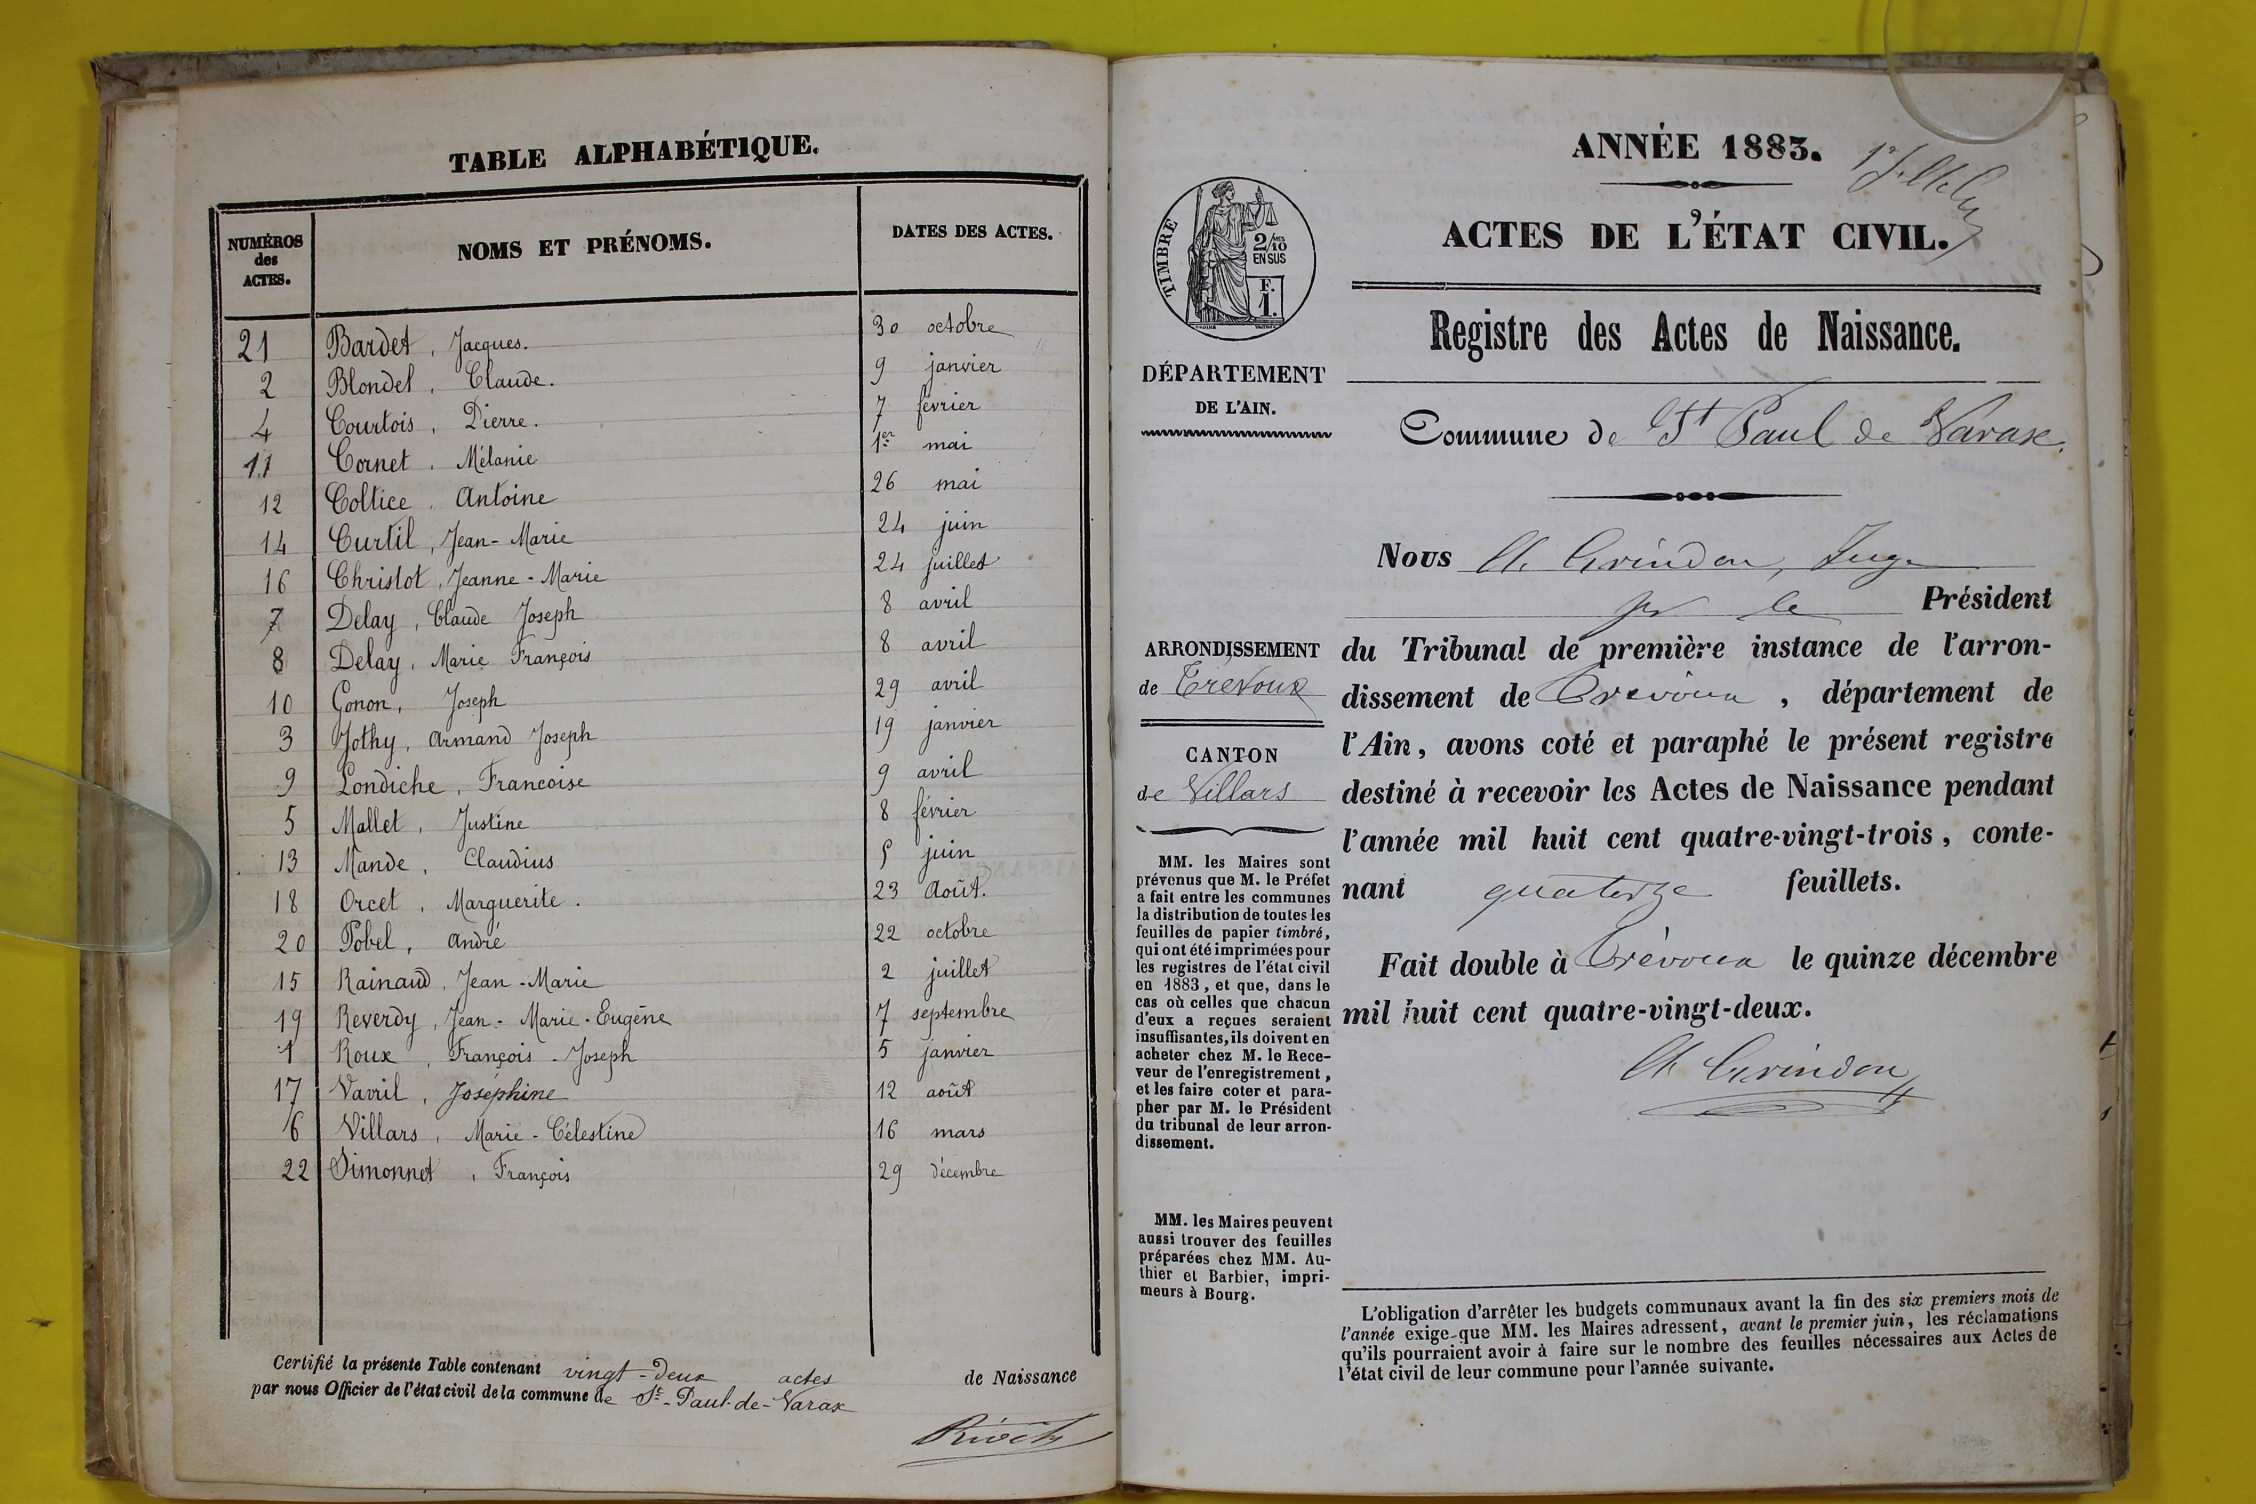 TABLE ALPHABÉTIQUE.
NUMÉROS des ACTES. NOMS ET PRÉNOMS. DATES DES ACTES.
21 Bardet, Jacques. 30 octobre
2 Blondel, Claude. 9 janvier
4 Courtois, Pierre. 7 février
11 Cornet, Mélanie 1er mai
12 Coltice, Antoine 26 mai
14 Curtil, Jean-Marie 24 juin
16 Christot, Jeanne-Marie 24 juillet
7 Delay, Claude Joseph 8 avril
8 Delay, Marie François 8 avril
10 Gonon, Joseph 29 avril
3 Jothy, Armand Joseph 19 janvier
9 Londiche, Francoise 9 avril
5 Mallet, Justine 8 février
13 Mande, Claudius 5 juin
18 Orcet, Marguerite. 23 Août.
20 Pobel, André 22 octobre
15 Rainaud, Jean-Marie 2 juillet
19 Reverdy, Jean-Marie-Eugène 7 septembre
1 Roux, François-Joseph 5 janvier
17 Vavril, Joséphine 12 août
6 Villars, Marie-Célestine 16 mars
22 Simonnet, François 29 décembre
Certifié la présente Table contenant vingt-deux actes de Naissance
par nous Officier de l'état civil de la commune de St-Paul-de-Varax
ANNÉE 1883.
ACTES DE L'ÉTAT CIVIL.
Registre des Actes de Naissance.
TIMBRE
2/10
EN SUS
F.
1.
DÉPARTEMENT
DE L'AIN.
ARRONDISSEMENT
de Trévoux
CANTON
de Villars
MM. les Maires sont
prévenus que M. le Préfet
a fait entre les communes
la distribution de toutes les
feuilles de papier timbré,
qui ont été imprimées pour
les registres de l'état civil
en 1883, et que, dans le
cas où celles que chacun
d'eux a reçues seraient
insuffisantes, ils doivent en
acheter chez M. le Rece-
veur de l'enregistrement,
et les faire coter et para-
pher par M. le Président
du tribunal de leur arron-
dissement.
MM. les Maires peuvent
aussi trouver des feuilles
préparées chez MM. Au-
thier et Barbier, impri-
meurs à Bourg.
Commune de St Paul de Varax.
Nous Ch. Grindon, Juge
pr le Président
du Tribunal de première instance de l'arron-
dissement de Trévoux, département de
l'Ain, avons coté et paraphé le présent registre
destiné à recevoir les Actes de Naissance pendant
l'année mil huit cent quatre-vingt-trois, conte-
nant quatorze feuillets.
Fait double à Trévoux le quinze décembre
mil huit cent quatre-vingt-deux.
Ch Grindon
L'obligation d'arrêter les budgets communaux avant la fin des six premiers mois de
l'année exige que MM. les Maires adressent, avant le premier juin, les réclamations
qu'ils pourraient avoir à faire sur le nombre des feuilles nécessaires aux Actes de
l'état civil de leur commune pour l'année suivante.